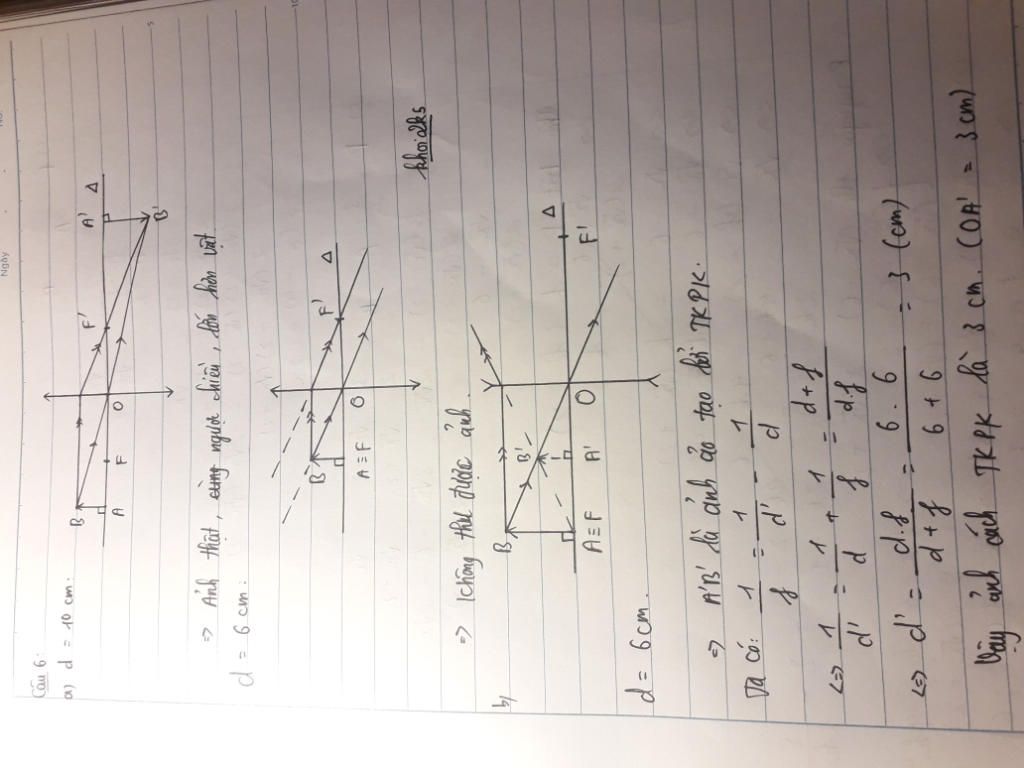 Ngày
No.
5
10
Câu 6:
a) d = 10 cm:
B
A
F
O
F'
A'
Δ
B'
=> Ảnh thật, cùng ngược chiều, lớn hơn vật
d = 6 cm:
B
A ≡ F
O
F'
Δ
khoi2ks
=> Không thu được ảnh.
b)
B
B'
A ≡ F
A'
O
F'
Δ
d = 6 cm.
=> A'B' là ảnh ảo tạo bởi TKPK.
Ta có: 1/f = 1/d' - 1/d
<=> 1/d' = 1/d + 1/f = d+f/d.f
<=> d' = d.f/d+f = 6.6/6+6 = 3 (cm)
Vậy ảnh cách TKPK là 3 cm. (OA' = 3 cm)